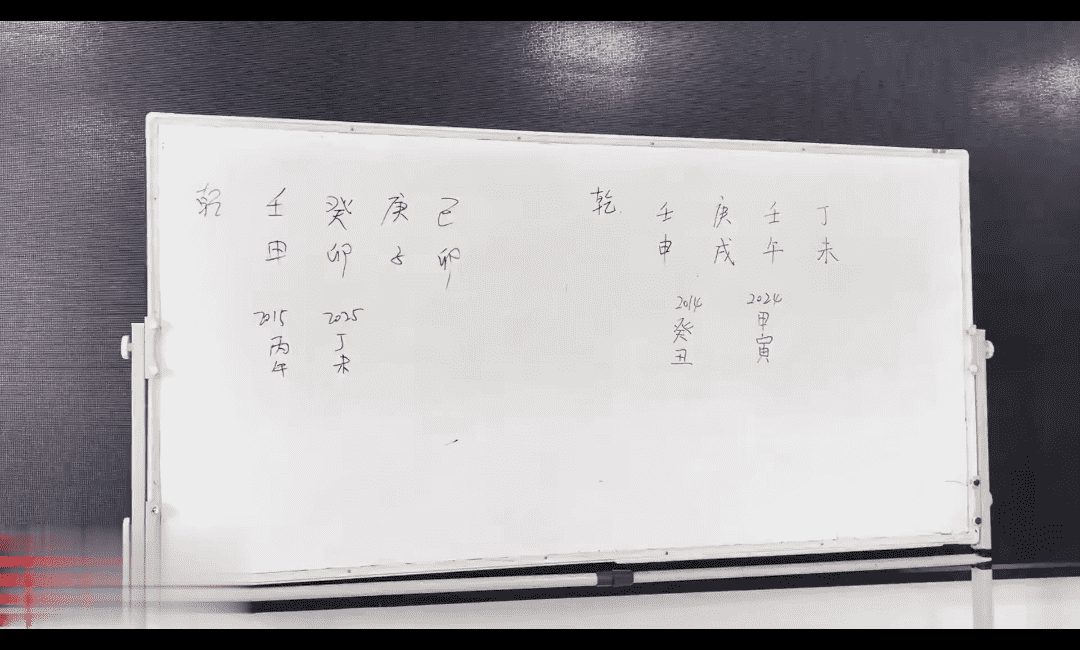 乾 壬 癸 庚 己
申 卯 子 卯
2015 2025
丙 丁
午 未
乾 壬 庚 壬 丁
申 戌 午 未
2014 2024
癸 甲
丑 寅